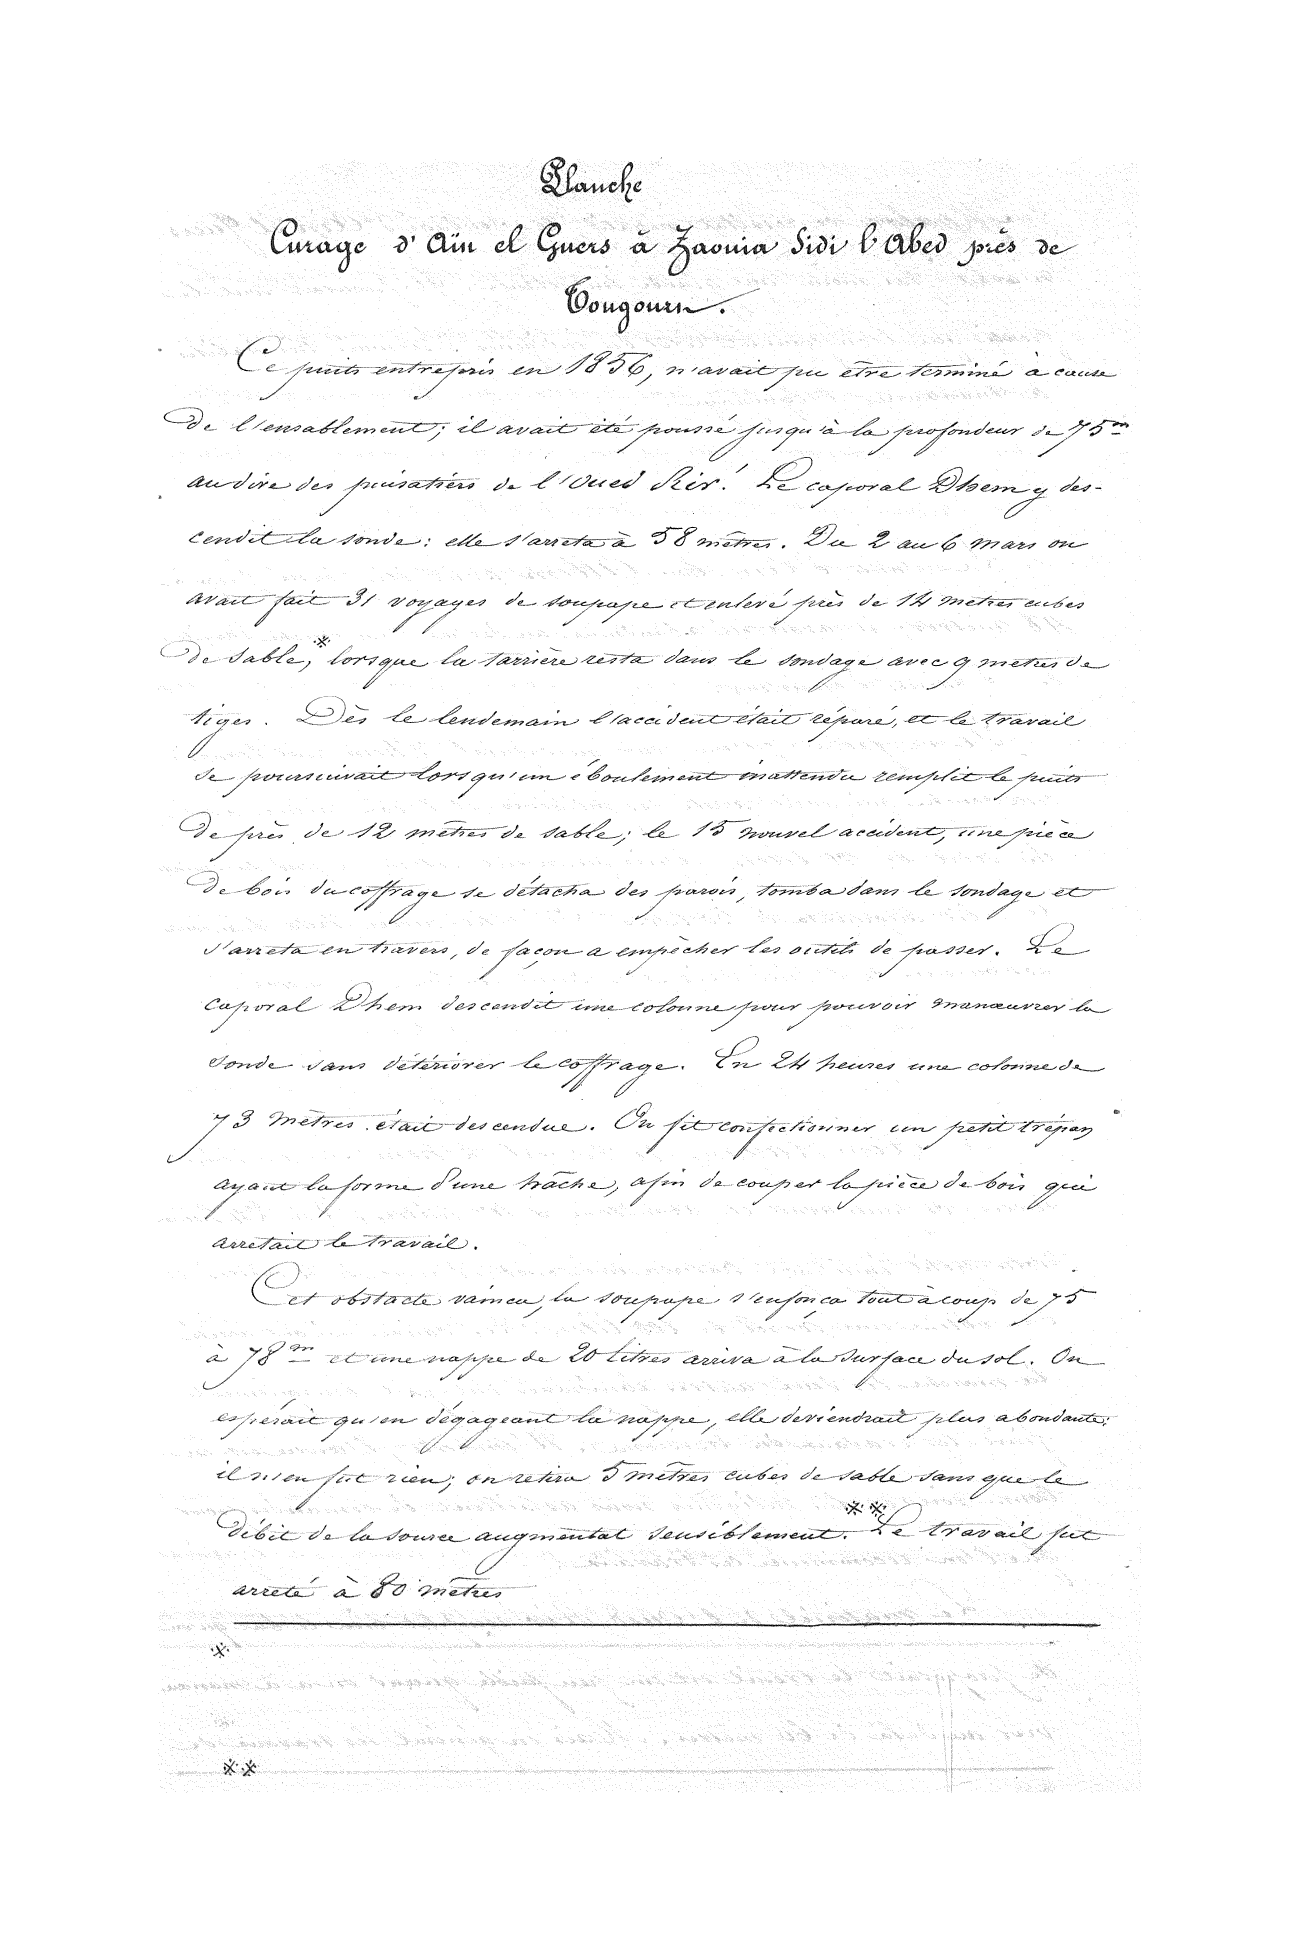 Planche
Curage d'Aïn el Guers à Zaouia Sidi l'Abed près de
Tougourn.
Ce puits entrepris en 1856, n'avait pu être terminé à cause
de l'ensablement; il avait été poussé jusqu'à la profondeur de 75m
au dire des puisatiers de l'Oued Rir'. Le caporal Dhem y des-
cendit la sonde: elle s'arreta à 58 mètres. Du 2 au 6 mars on
avait fait 31 voyages de soupape et enlevé près de 14 metres cubes
de sable,* lorsque la tarrière resta dans le sondage avec 9 metres de
tiges. Dès le lendemain l'accident était réparé, et le travail
se poursuivait lorsqu'un éboulement inattendu remplit le puits
de près de 12 mètres de sable; le 15 nouvel accident, une pièce
de bois du coffrage se détacha des parois, tomba dans le sondage et
s'arreta en travers, de façon a empêcher les outils de passer. Le
caporal Dhem descendit une colonne pour pouvoir manœuvrer la
sonde sans détériorer le coffrage. En 24 heures une colonne de
73 mètres était descendue. On fit confectionner un petit trépan
ayant la forme d'une hâche, afin de couper la pièce de bois qui
arretait le travail.
Cet obstacle vaincu, la soupape s'enfonça tout à coup de 75
à 78m et une nappe de 20 litres arriva à la surface du sol. On
espérait qu'en dégageant la nappe, elle deviendrait plus abondante;
il n'en fut rien; on retira 5 mètres cubes de sable sans que le
débit de la source augmentat sensiblement.** Le travail fut
arreté à 80 mètres
*
**